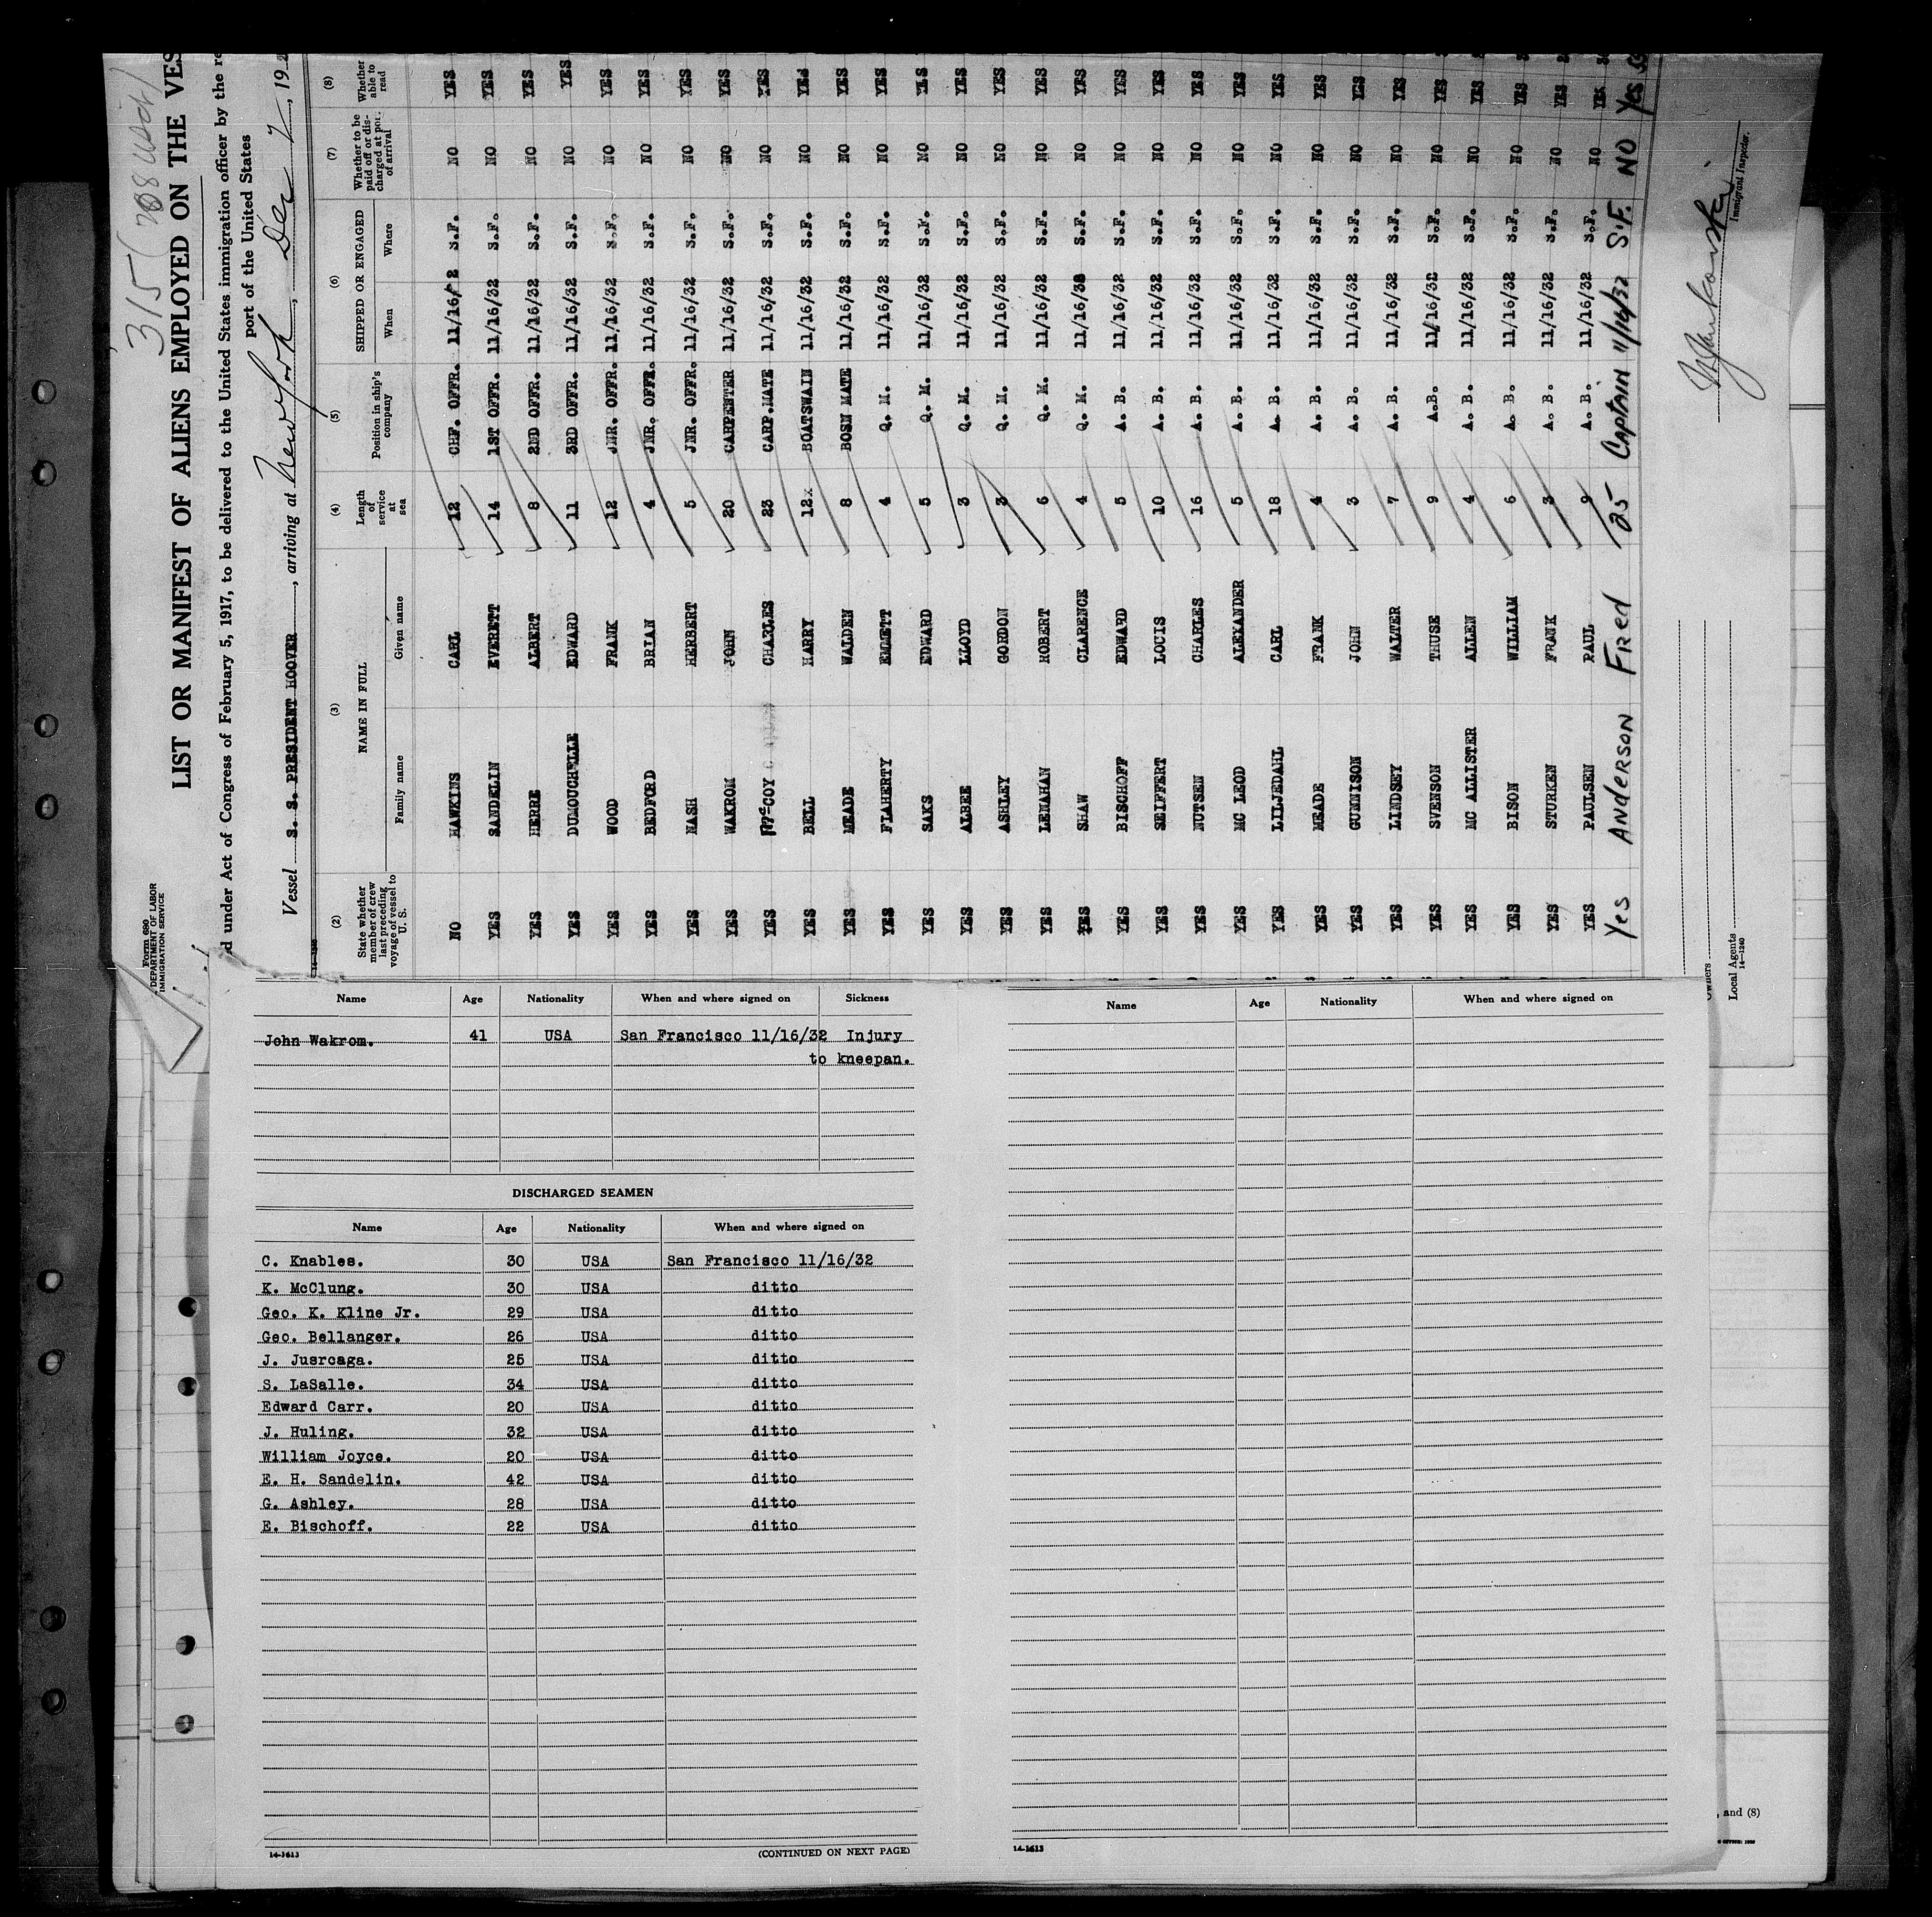 315 (
Form 680
DEPARTMENT OF LABOR
IMMIGRATION SERVICE
LIST OR MANIFEST OF ALIENS EMPLOYED ON THE VES
d under Act of Congress of February 5, 1917, to be delivered to the United States immigration officer by the re
port of the United States
Vessel S. S. PRESIDENT HOOVER, arriving at New York, Dec 7, 19
(2) (3) (4) (5) (6) (7) (8)
State whether member of crew last preceding voyage of vessel to U. S. NAME IN FULL Family name Given name Length of service at sea Position in ship's company SHIPPED OR ENGAGED When Where Whether to be paid off or discharged at port of arrival Whether able to read
NO HAWKINS CARL 12 CHF. OFFR. 11/16/32 S.F. NO YES
YES SANDELIN EVERETT 14 1ST OFFR. 11/16/32 S.F. NO YES
YES HERRE ALBERT 8 2ND OFFR. 11/16/32 S.F. NO YES
YES DUMOUCHELLE EDWARD 11 3RD OFFR. 11/16/32 S.F. NO YES
YES WOOD FRANK 12 JNR. OFFR. 11/16/32 S.F. NO YES
YES BEDFORD BRIAN 4 JNR. OFFR. 11/16/32 S.F. NO YES
YES NASH HERBERT 5 JNR. OFFR. 11/16/32 S.F. NO YES
YES WAKROM JOHN 20 CARPENTER 11/16/32 S.F. NO YES
YES COY CHARLES 23 CARP.MATE 11/16/32 S.F. NO YES
YES BELL HARRY 12 BOATSWAIN 11/16/32 S.F. NO YES
YES MEADE WALDEN 8 BOSN MATE 11/16/32 S.F. NO YES
YES FLAHERTY EMMETT 4 Q. M. 11/16/32 S.F. NO YES
YES SAKS EDWARD 5 Q. M. 11/16/32 S.F. NO YES
YES ALBEE LLOYD 3 Q. M. 11/16/32 S.F. NO YES
YES ASHLEY GORDON 3 Q. M. 11/16/32 S.F. NO YES
YES LENAHAN ROBERT 6 Q. M. 11/16/32 S.F. NO YES
YES SHAW CLARENCE 4 Q. M. 11/16/32 S.F. NO YES
YES BISCHOFF EDWARD 5 A. B. 11/16/32 S.F. NO YES
YES SEIFFERT LOUIS 10 A. B. 11/16/32 S.F. NO YES
YES NUTSEN CHARLES 16 A. B. 11/16/32 S.F. NO YES
YES MC LEOD ALEXANDER 5 A. B. 11/16/32 S.F. NO YES
YES LILJEDAHL CARL 18 A. B. 11/16/32 S.F. NO YES
YES MEADE FRANK 4 A. B. 11/16/32 S.F. NO YES
YES GUNNISON JOHN 3 A. B. 11/16/32 S.F. NO YES
YES LINDSEY WALTER 7 A. B. 11/16/32 S.F. NO YES
YES SVENSON THUSE 9 A.B. 11/16/32 S.F. NO YES
YES MC ALLISTER ALLEN 4 A. B. 11/16/32 S.F. NO YES
YES BISON WILLIAM 6 A. B. 11/16/32 S.F. NO YES
YES STURKEN FRANK 3 A. B. 11/16/32 S.F. NO YES
YES PAULSEN PAUL 9 A. B. 11/16/32 S.F. NO YES
Yes Anderson Fred 25 Captain 11/16/32 S.F. NO Yes
Immigrant Inspector.
Owners
Local Agents
14-1240
Name Age Nationality When and where signed on Sickness
John Wakrom. 41 USA San Francisco 11/16/32 Injury
to kneepan.
DISCHARGED SEAMEN
Name Age Nationality When and where signed on
C. Knables. 30 USA San Francisco 11/16/32
K. McClung. 30 USA ditto
Geo. K. Kline Jr. 29 USA ditto
Geo. Bellanger. 26 USA ditto
J. Jusrcaga. 25 USA ditto
S. LaSalle. 34 USA ditto
Edward Carr. 20 USA ditto
J. Huling. 32 USA ditto
William Joyce. 20 USA ditto
E. H. Sandelin. 42 USA ditto
G. Ashley. 28 USA ditto
E. Bischoff. 22 USA ditto
14-1613
(CONTINUED ON NEXT PAGE)
Name Age Nationality When and where signed on
14-1613
, and (8)